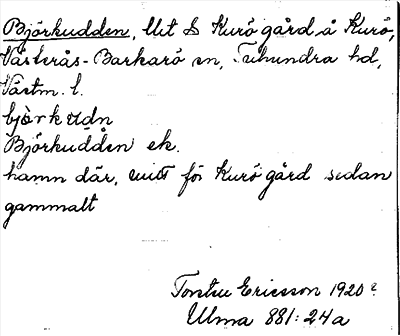 Björkudden,llit S Kurö gård å Kurö,
Västerås-Barkarö sn, Tuhundra hd,
Västm. l.
bjòrkudn
Björkudden ek.
hamn där, mitt för Kurö gård sedan
gammalt
Torsten Ericsson 1920?
Ulma 881:24a